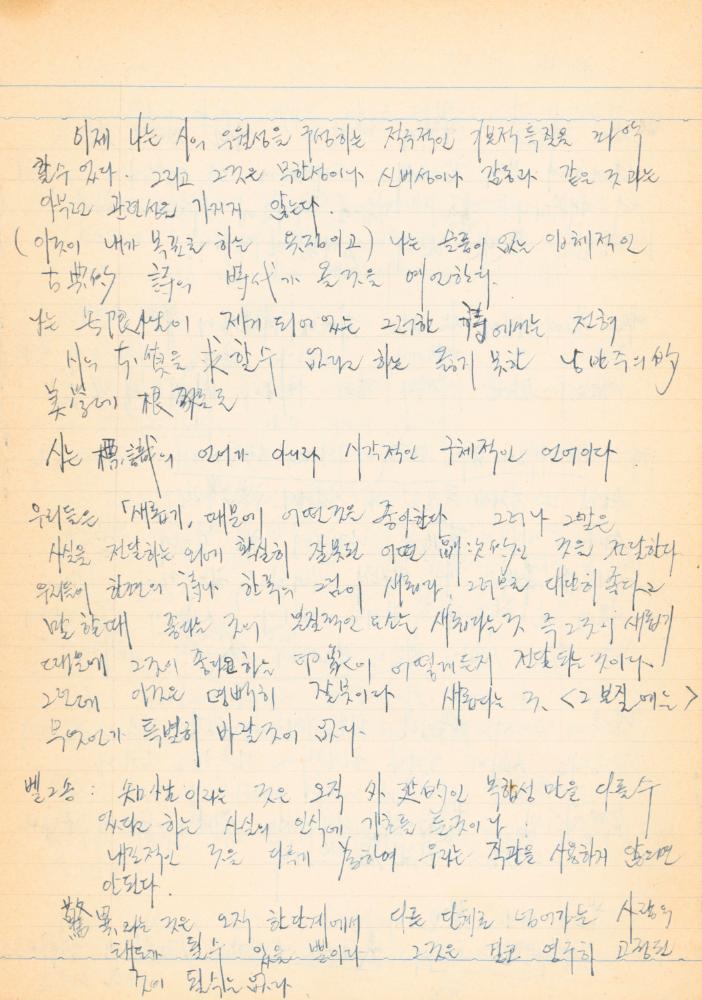 이제 나는 시의 우월성을 구성하는 적극적인 根本的 특질을 파악
할수 있다. 그리고 그것은 무한성이나 신비성이나 감동과 같은 것과는
아무런 관련성을 가지지 않는다.
(이것이 내가 목표로 하는 욧점이고) 나는 슬픔이 없는 구체적인
古典的 詩의 時代가 올것을 예언한다.
나는 無限性이 제거 되어있는 그러한 詩에서는 전혀
시의 本質을 求할수 없다고 하는 옳지 못한 낭만주의的
美學에 根
시는 標識의 언어가 아니라 시각적인 구체적인 언어이다.
우리들은 「새롭기, 때문에 어떤것을 좋아한다 그러나 그말은
사실을 전달하는 외에 확실히 잘못된 어떤 副次的인 것을 전달한다
우리들이 한편의 詩나 한폭의 그림이 새롭다, 그러므로 대단히 좋다고
말 할때 좋다는 것의 본질적인 요소는 새롭다는것 즉 그것이 새롭기
때문에 그것이 좋다고하는 印象이 어떻게든지 전달 되는 것이다.
그런데 이것은 명백히 잘못이다 새롭다는 것, <그 본질에는>
무엇인가 특별히 바랄것이 없다.
벨그송 : 知性이라는 것은 오직 外延的인 복합성 만을 다룰수
있다고 하는 사실의 인식에 기초를 둔것이나 ;
내포적인 것을 다루기 위하여 우리는 직관을 사용하지 않으면
안된다.
驚異라는 것은 오직 한단계에서 다른 단계로 넘어가는 사람의
태도가 될수 있을 뿐이다 그것은 결코 영구히 고정된
것이 될수는 없다